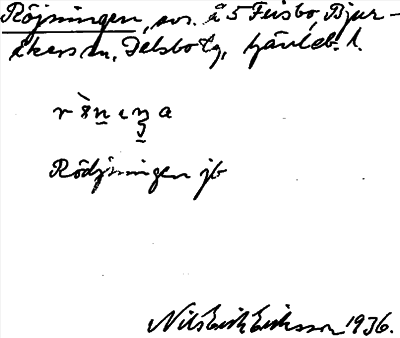 Röjningen, avs. å 5 Feisbo, Bjur-
åkers sn, Delsbo tg, Gävleb. l.
Rödjningen jb
Nils Erik Eriksson 1936.